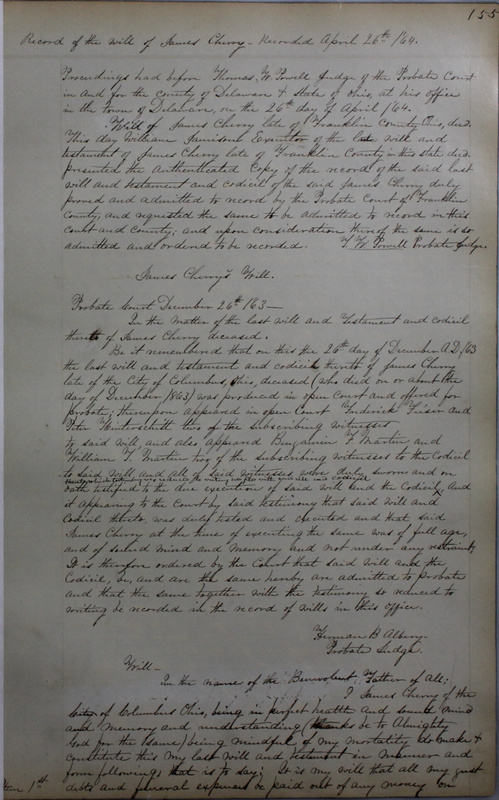 155
Record of the will of James Cherry - Recorded April 26th 1/64.
Proceedings had before Thomas W. Powell Judge of the Probate Court
in and for the county of Delaware & State of Ohio, at his office
in the town of Delaware, on the 26th day of April 1/64.
Will of James Cherry late of Franklin County, Ohio, decd.
This day William Jamison Executor of the late will and
testament of James Cherry late of Franklin County in this State decd.
presented the Authenticated Copy of the record of the said last
will and testament and codicil of the said James Cherry duly
proved and admitted to record by the Probate Court of Franklin
County, and requested the same to be admitted to record in this
court and County; and upon consideration thereof the same is so
admitted and ordered to be recorded. T. W. Powell Probate Judge.
James Cherry's Will.
Probate Court December 26th 1/63 -
In the matter of the last will and Testament and codicil
thereto of James Cherry deceased.
Be it remembered that on this the 26th day of December A.D. 1/63
the last will and testament and codicil thereto of James Cherry
late of the City of Columbus, Ohio, deceased (who died on or about the
day of December 1863) was produced in open Court and offered for
probate; thereupon appeared in open Court Frederick and
Peter two of the subscribing witnesses
to said will, and also appeared Benjamin F Martin and
William T. Martin two of the subscribing witnesses to the Codicil
to said will, and all of said witnesses were duly sworn and on
oath testified to the due execution of said will and the Codicil, And
it appearing to the Court by said testimony that said will and
Codicil thereto, was duly tested and executed and that said
James Cherry at the time of executing the same was of full age,
and of sound mind and memory and not under any restraint,
It is therefore ordered by the Court that said will and the
Codicil, be, and are the same hereby are admitted to probate
and that the same together with the testimony so reduced to
writing be recorded in the record of wills in this office.
Herman B Albery
Probate Judge.
Will -
In the name of the Benevolent Father of All;
I James Cherry of the
City of Columbus Ohio, being in perfect health and sound mind
and Memory and understanding (thanks be to Almighty
God for the same) being mindful of my mortality do make &
constitute this my last will and testament in manner and
form following, that is to say; It is my will that all my just
Item 1st. debts and funeral expenses be paid out of any money on